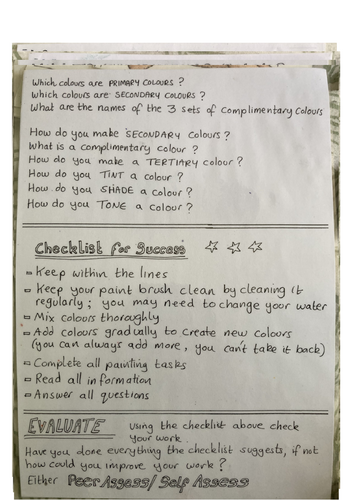 Which colours are PRIMARY COLOURS ?
Which colours are SECONDARY COLOURS ?
What are the names of the 3 sets of Complimentary Colours
How do you make SECONDARY Colours ?
What is a complimentary colour ?
How do you make a TERTIARY colour ?
How do you TINT a colour ?
How do you SHADE a colour ?
How do you TONE a colour ?
Checklist for Success
Keep within the lines
Keep your paint brush clean by cleaning it
regularly ; you may need to change your water
Mix colours thoroughly
Add colours gradually to create new colours
(you can always add more, you can't take it back)
Complete all painting tasks
Read all information
Answer all questions
EVALUATE Using the checklist above check
your work.
Have you done everything the checklist suggests, if not
how could you improve your work ?
Either Peer Assess/ Self Assess